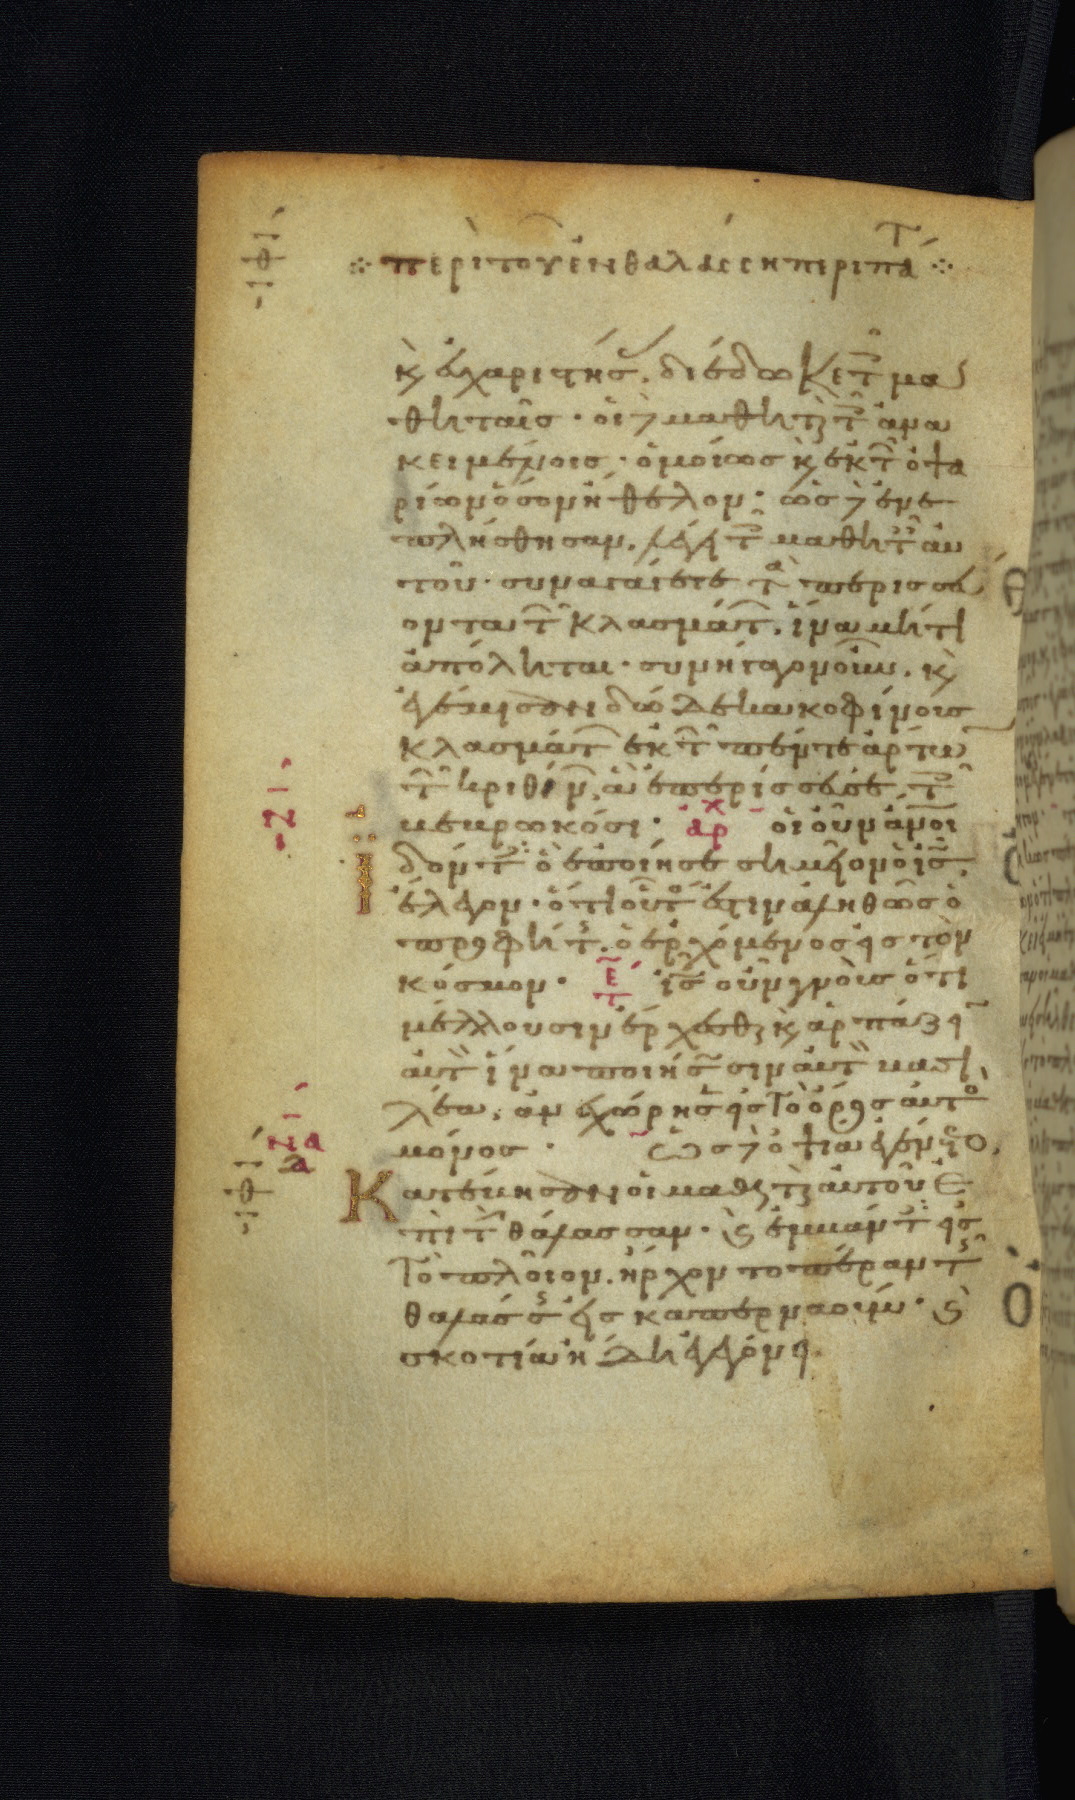 ·ιθι·
⁘ περὶ τοῦ ἐν θαλάσσῃ περιπάτ ⁘
κ εὐχαριστήσ. διέδωκε τ μα
θηταῖσ · οἱ δ μαθητ τ ἀνα
κειμένοισ · ὁμοίωσ κ ἐκ τ ὀψα
ρίων ὅσον ἤθελον · ὡσ δ ἐνε
πλήσθησαν. λέγει τ μαθητ αὐ
τοῦ · συναγάγετε τ περισσεύ
οντα τ κλασμάτ. ἵνα μή τι
ἀπόληται · συνήγαγον οὖν. κ
ἐγέμισαν δώδεκα κοφίνουσ
κλασμάτ ἐκ τ πέντε ἄρτων
τ κριθίν. ἃ ἐπερίσσευσε τ
βεβρωκόσι · ἀρχ οἱ οὖν ἄνοι
ἰδόντ ὃ ἐποίησε σημεῖον ὁ ισ.
ἔλεγον · ὅτι οὗτ ἐστιν ἀληθῶσ ὁ
προφήτ. ὁ ἐρχόμενοσ εἰσ τὸν
κόσμον · τε ισ οὖν γνοὺσ ὅτι
μέλλουσιν ἔρχεσθ κ ἁρπάζειν
αὐτ ἵνα ποιήσσιν αὐτ βασι
λέα. ἀνεχώρησ εἰσ τὸ ὄροσ αὐτο
μόνοσ · ὡσ δ ὀψία ἐγένετο,
κατέβησαν οἱ μαθητ αὐτοῦ ἐ
πὶ τ θάλασσαν · κ ἐμβάντ εἰσ
τὸ πλοῖον. ἤρχοντο πέραν τ
θαλάσσ εἰσ καπερναούμ · κ
σκοτία ἤδη ἐγεγόνει.
·ζι·